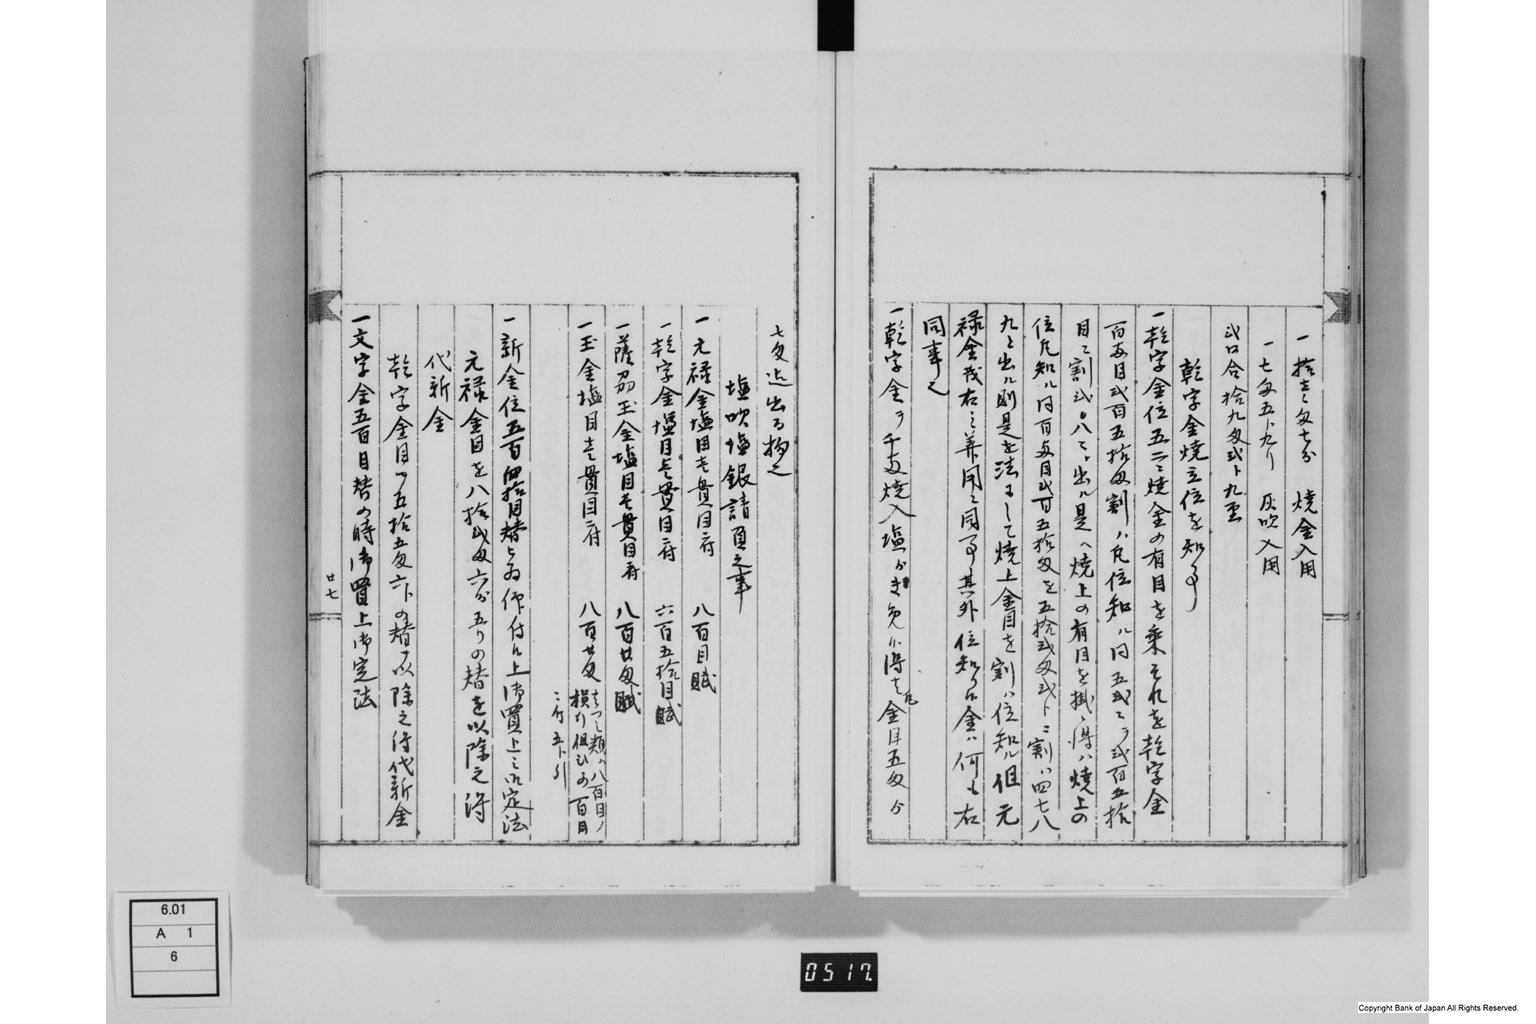 一拾壱匁七分 焼金入用
一七匁五分九り 灰吹入用
弐口合拾九匁弐分九厘
乾字金焼立位を知る事
一乾字金位五二ニ焼金の有目を乗それを乾字金
百両目弐百五拾匁割ハ凡位知ル日五弐ニテ弐百五拾
目ニ割弐〇八ニ出ル是ヘ焼上の有目を掛ケ得ハ焼上の
位凡知ル日百両目弐百五拾匁を五拾弐匁弐分ニ割ハ四七八
九ト出ル則是を法にして焼上金目を割ハ位知ル但元
禄金茂右之算用ニ同事其外位知ル金ハ何も右
同事也
一乾字金テ千両焼入塩
金目五匁
七匁迄出る物也
塩吹塩銀請負之事
一元禄金塩目壱貫目ニ付 八百目賦
一乾字金塩目壱貫目ニ付 六百五拾目賦
一薩州玉金塩目壱貫目ニ付 八百廿匁賦
一玉金塩目壱貫目ニ付 八百廿匁
一新金位五百四拾目替ら為仰付候上御買上之御定法
元禄金目を八拾弐匁六分五りの替を以除之得
代新金
乾字金目ヲ五拾五匁六分の替以除之得代新金
一文字金五百目替の時御買上御定法
廿七
6.01
A 1
6
0517.
Copyright Bank of Japan All Rights Reserved.